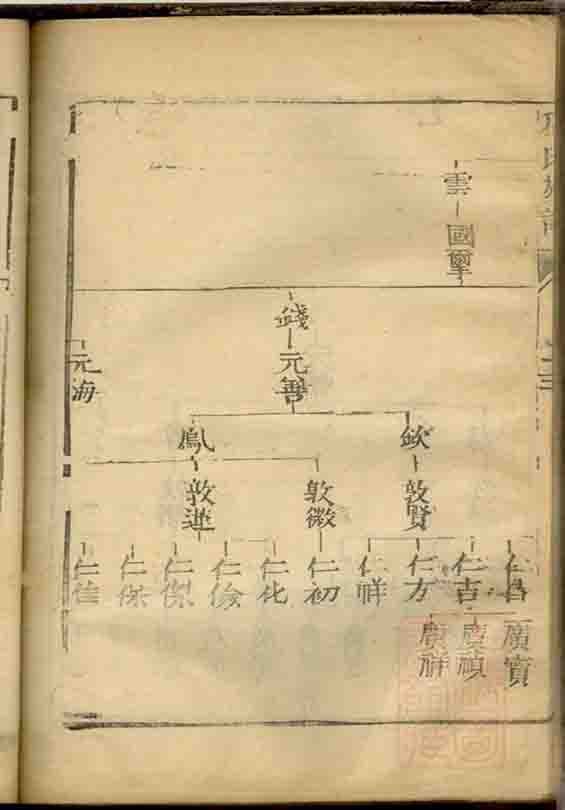 雲
國璽
錢
元善
元海
欽
鳳
敦賢
敦微
敦遜
仁昌
仁吉
仁方
仁祥
仁初
仁化
仁儉
仁傑
仁保
仁佳
廣寶
廣禎
廣祥